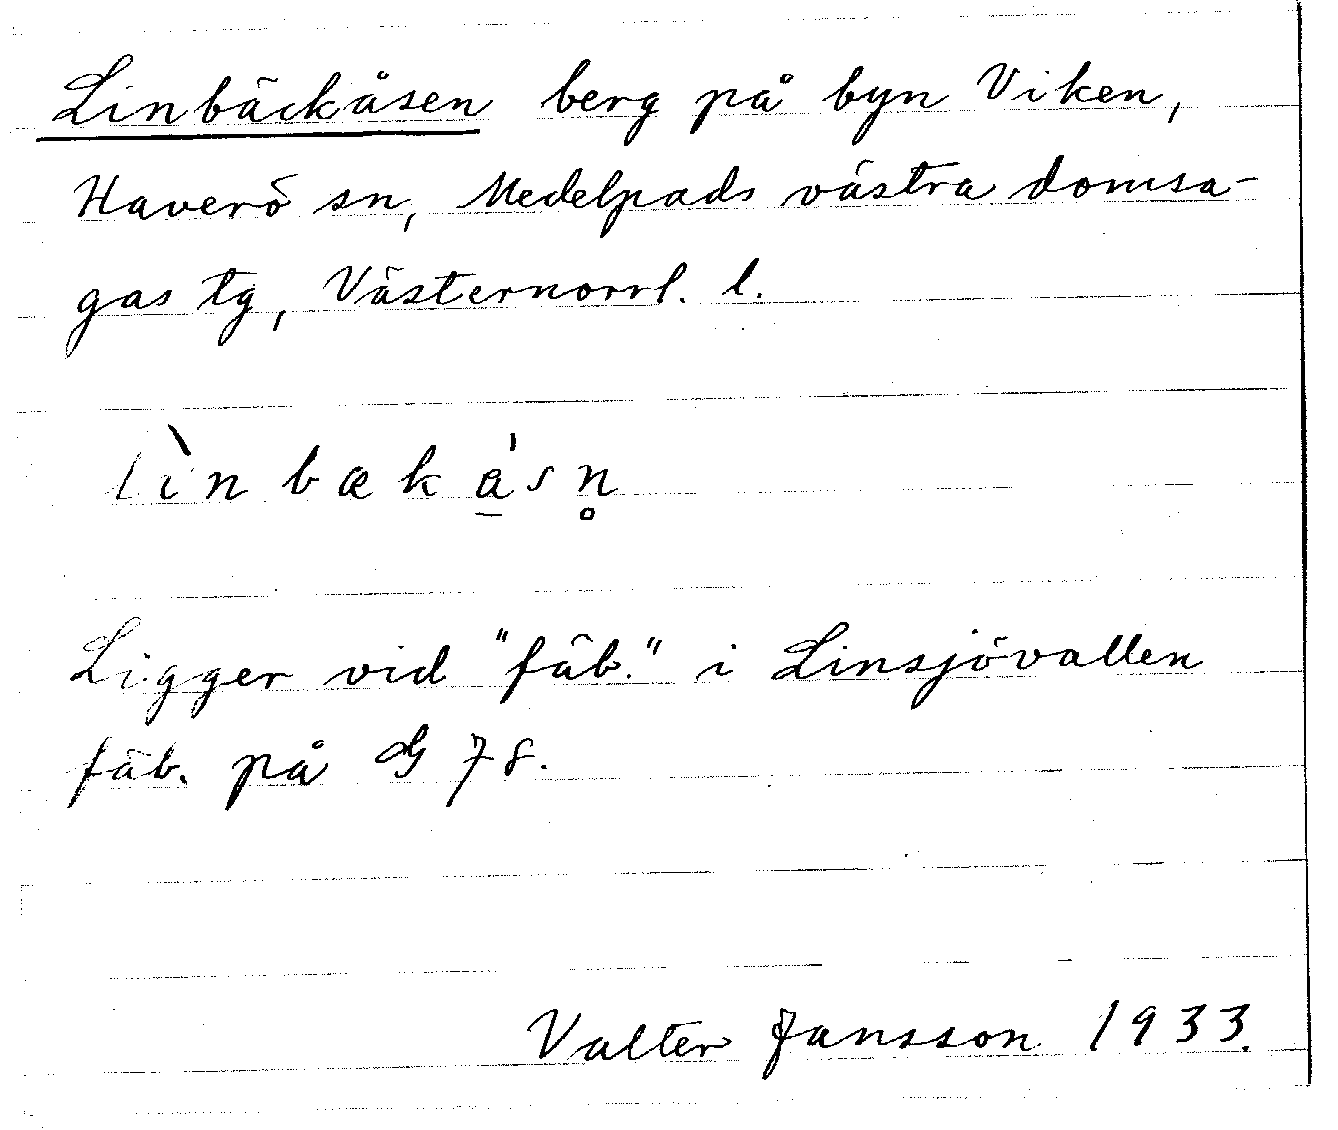 Linbäckåsen berg på byn Viken,
Haverö sn, Medelpads västra domsa-
gas tg, Västernorrl. l.
lìnbækå̱'sn̥
Ligger vid "fäb." i Linsjövallen
fäb. på G 78.
Valter Jansson 1933.